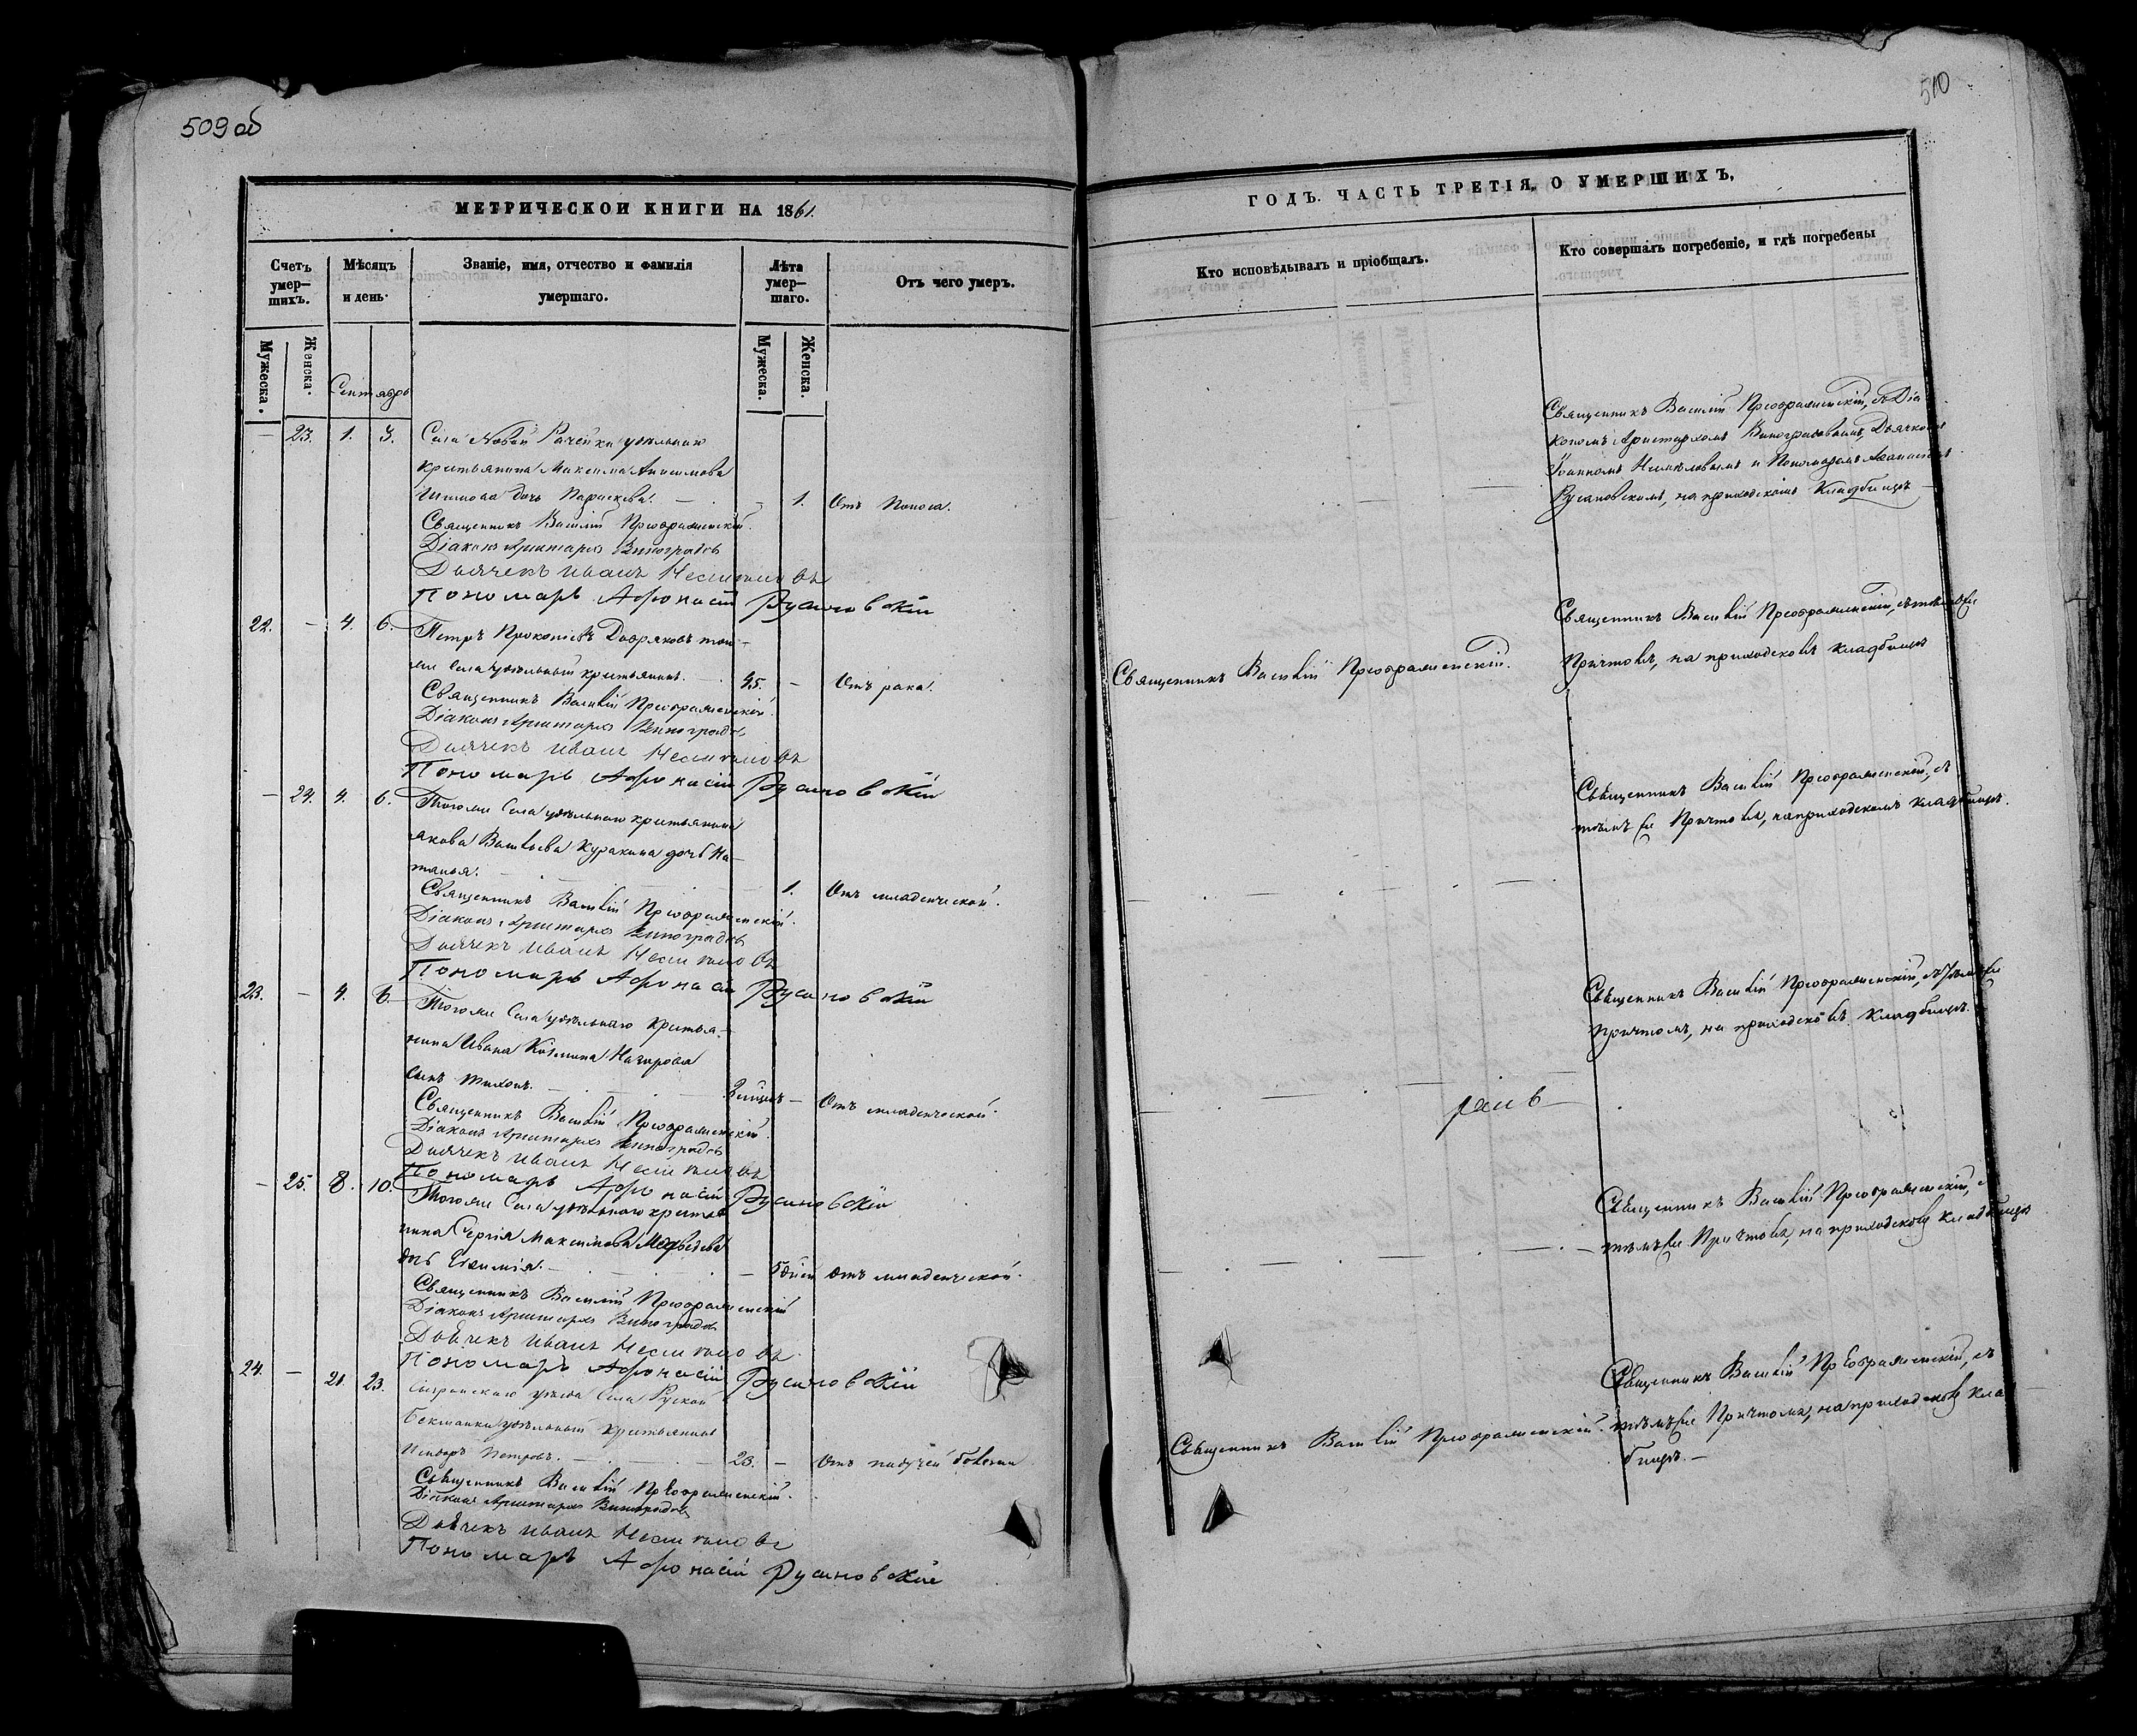 509 об
МЕТРИЧЕСКОЙ КНИГИ НА 1861.
Счетъ умер-шихъ.
Мѣсяцъ и день.
Званіе, имя, отчество и фамилія умершаго.
Лѣта умер-шаго.
Отъ чего умеръ.
Мужеска.
Женска.
Мужеска.
Женска.
Сентябрь
— 23. 1. 3. Села Новой Рачейки удѣльнаго
крестьянина Максима Анисимова
дочь Параскева. — 1. Отъ поноса.
Священникъ Василій Преображенскій.
Діаконъ Аристархъ Виноградовъ
Дьячекъ Иванъ
Пономарь Афонасій Русановскій
22. — 4. 6. Петръ Прокопіевъ Добряковъ того-
же села удѣльный крестьянинъ. 45. — Отъ рака.
Священникъ Василій Преображенскій.
Діаконъ Аристархъ Виноградовъ
Дьячекъ Иванъ
Пономарь Афонасій Русановскій
— 24. 4. 6. Тогоже села удѣльнаго крестьянина
Якова Васильева Куракина дочь На-
талья. — 1. Отъ младенческой.
Священникъ Василій Преображенскій.
Діаконъ Аристархъ Виноградовъ
Дьячекъ Иванъ
Пономарь Афонасій Русановскій
23. — 4. 6. Тогоже села удѣльнаго крестья-
нина Ивана Козмина
сынъ Тихонъ. — Отъ младенческой.
Священникъ Василій Преображенскій.
Діаконъ Аристархъ Виноградовъ
Дьячекъ Иванъ
Пономарь Афонасій Русановскій
— 25. 8. 10. Тогоже села удѣльнаго крестья
нина Сергія Максимова Медвѣдева
дочь Евѳимія. — 5 дней Отъ младенческой.
Священникъ Василій Преображенскій
Діаконъ Аристархъ Виноградовъ
Дьячекъ Иванъ
Пономарь Афонасій Русановскій
24. — 21. 23. Сызранскаго уѣзда села Руской
Бекшанки удѣльный крестьянинъ
Петровъ. — 23. — Отъ падучей болезни
Священникъ Василій Преображенскій.
Діаконъ Аристархъ Виноградовъ
Дьячекъ Иванъ
Пономарь Афонасій Русановскій
510
ГОДЪ. ЧАСТЬ ТРЕТІЯ, О УМЕРШИХЪ,
Кто исповѣдывалъ и пріобщалъ.
Кто совершалъ погребеніе, и гдѣ погребены
Священникъ Василій Преображенскій, съ Діа
кономъ Аристархомъ Виноградовымъ, Дьячкомъ
Іоанномъ и Пономаремъ Аѳанасіемъ
Русановскимъ, на приходскомъ кладбищѣ
Священникъ Василій Преображенскій, съ тѣмъ же
Священникъ Василій Преображенскій.
Причтомъ, на приходскомъ кладбищѣ
Священникъ Василій Преображенскій, съ
тѣмъ же Причтомъ, на приходскомъ кладбищѣ.
Священникъ Василій Преображенскій, съ тѣмъ же
Причтомъ, на приходскомъ кладбищѣ.
Священникъ Василій Преображенскій, съ
тѣмъ же Причтомъ, на приходскомъ кладбищѣ
Священникъ Василій Преображенскій, съ
Священникъ Василій Преображенскій.
тѣмъ же Причтомъ, на приходскомъ клад
бищѣ. —